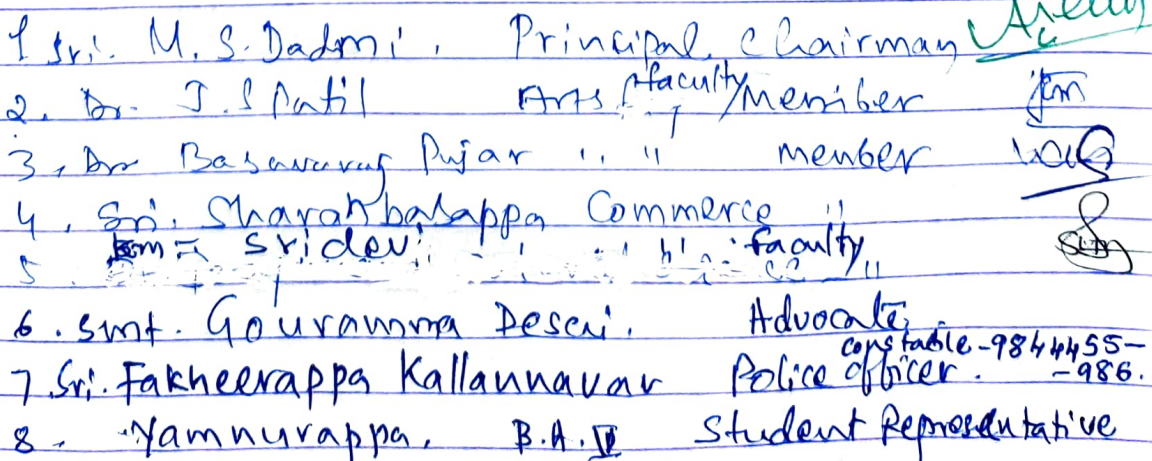 1 Sri. M. S. Dadmi. Principal Chairman
2. Dr. J. S Patil Arts faculty Member
3, Dr Basavaraj Pujar ,, ,, member
4, Sri. Sharanbasappa Commerce ,,
5 Sridevi faculty ,,
6. Smt. Gouramma Desai. Advocate,
constable - 9844455-
7. Sri. Fakheerappa Kallannavar Police officer. -986.
8. Yamnurappa. B.A. Student Representative